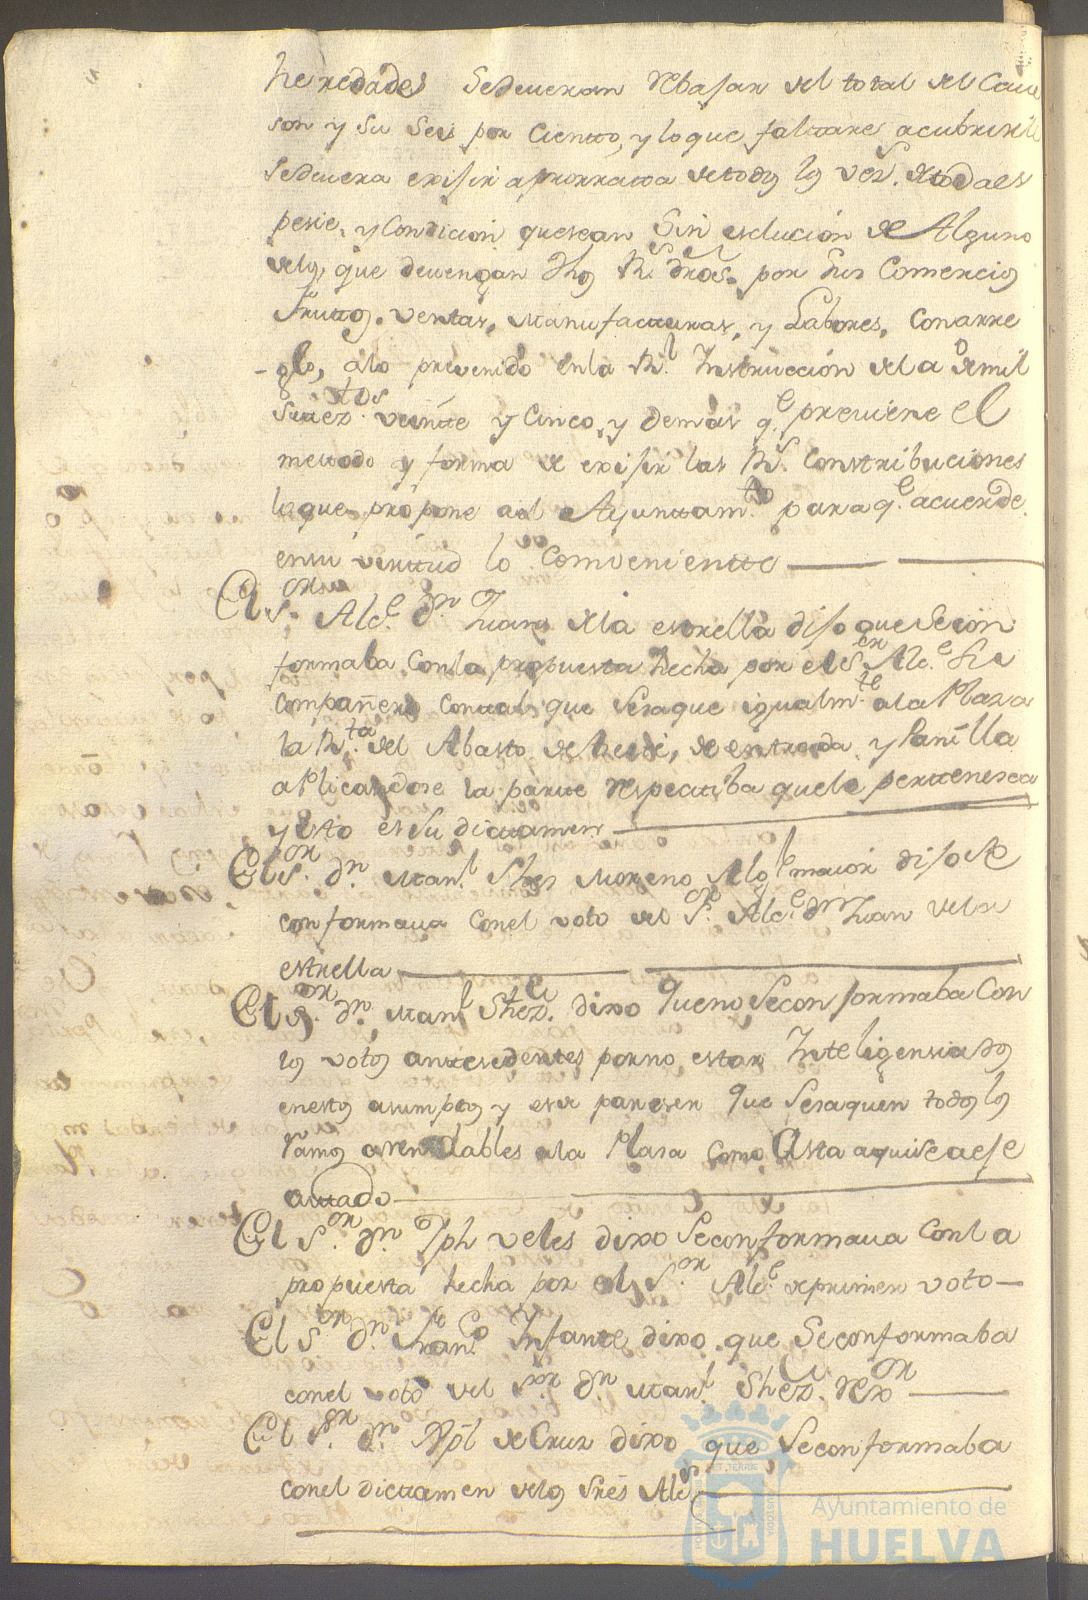 heredades Sedeueran rebajar del total del Caue
son y su seis por Ciento, y loque faltare acubrirse
Sedeuera exijir aprorrata detodos los vezs. detoda es
pesie, y Condicion quesean Sin esclucion de Alguno
delos, que deuengan dhos Rs. dros. por sus Comercios
frutos, ventas, Manufacturas, y Labores, Conarre
glo, alo prevenido enla Rl. Instruccion dela de mil
setezos. veinte y Cinco, y demas qe. previene el
metodo y forma de exijir las Rs. Contribuciones
loque propone ael Ayuntamto. para qe. acuerde
ensu virtud lo Combeniente
El Sor. Alce. dn. Juan dela estrella dijo que secon
formaba Conla propuesta hecha por el Sor. Alce. su
Compañero Contal que Sesaque igualmte. ala Plaza
la Rta. del Abasto de Aceite, de entrada y Panilla
aplicandose la parte respectiba quele pertenesca
y esto es su dictamen
El Sor. dn. Manl. Shes Moreno Algl. maior dijo se
conformaua Conel voto del Sr. Alce. dn Juan dela
estrella
El Sor. dn. Manl. Shez. dixo Queno Secon formaba Con
los votos antesedentes porno estar Inteligensiados
enestos asumptos y esde pareser Que Sesaquen todos los
ramos arendables ala Plasa Como Asta aquiseaeje
cutado
El Sor. dn. Jph Veles dixo Seconformaua Con la
propuesta hecha por el Sor. Alce. deprimer voto
El Sor. dn. Franco. Infante dixo que Seconformaba
conel voto del Sor. dn Manl. Shez. Rexor
El Sor. dn. Xptl. de Cruz dixo que Seconformaba
conel dictamen delos Sres Alces
Ayuntamiento de
HUELVA